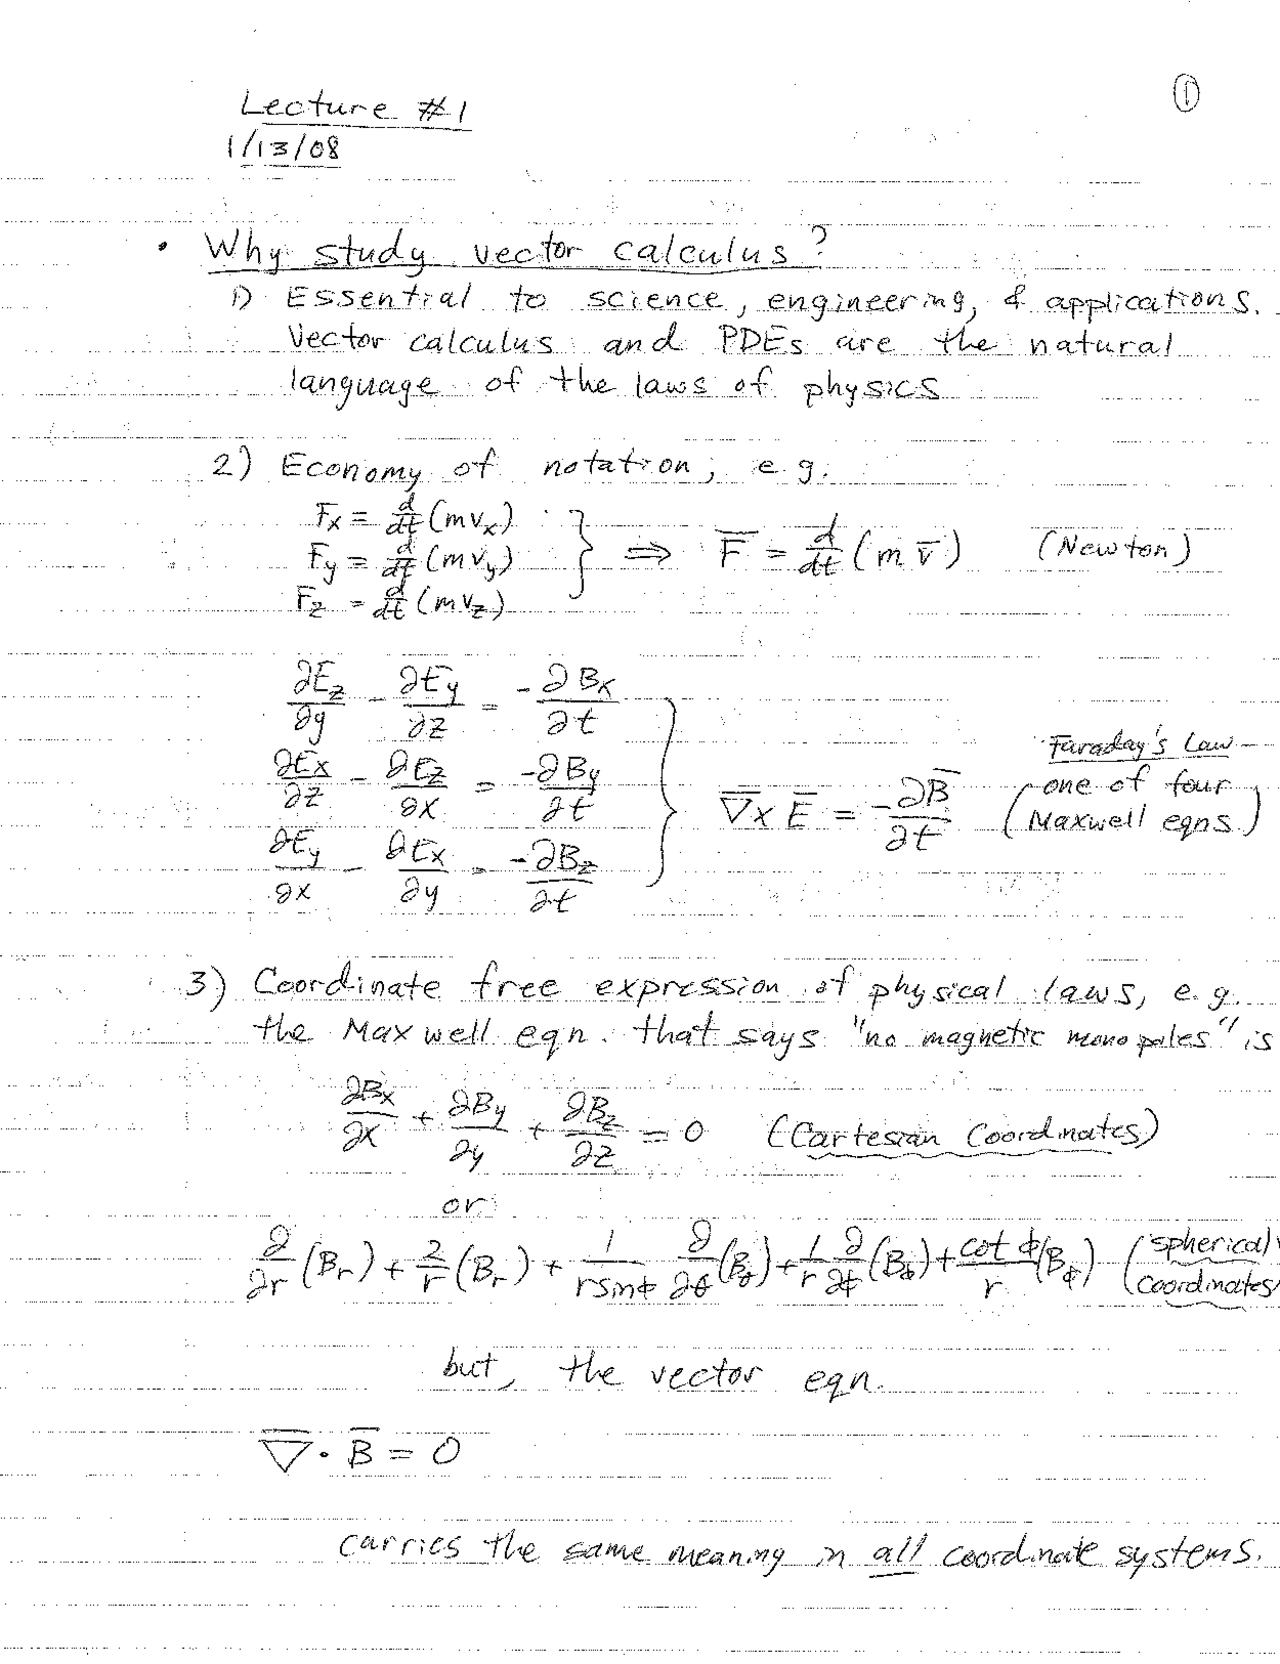 ①
Lecture #1
1/13/08
• Why study vector calculus?
1) Essential to science, engineering, & applications.
Vector calculus and PDEs are the natural
language of the laws of physics
2) Economy of notation, e.g.
Fx = d/dt (m vx)
Fy = d/dt (m vy)
Fz = d/dt (m vz)
} ⇒ F̅ = d/dt (m v̅) (Newton)
∂Ez/∂y - ∂Ey/∂z = -∂Bx/∂t
∂Ex/∂z - ∂Ez/∂x = -∂By/∂t
∂Ey/∂x - ∂Ex/∂y = -∂Bz/∂t
} ∇̅ x E̅ = -∂B̅/∂t
(Faraday's Law –
one of four
Maxwell eqns.)
3) Coordinate free expression of physical laws, e.g.
the Maxwell eqn. that says "no magnetic monopoles" is
∂Bx/∂x + ∂By/∂y + ∂Bz/∂z = 0 (Cartesian Coordinates)
or
∂/∂r (Br) + 2/r (Br) + 1/(r sinϕ) ∂/∂θ (Bθ) + 1/r ∂/∂ϕ (Bϕ) + cot ϕ/r (Bϕ) (spherical
coordinates
but, the vector eqn.
∇̅ · B̅ = 0
carries the same meaning in all coordinate systems.